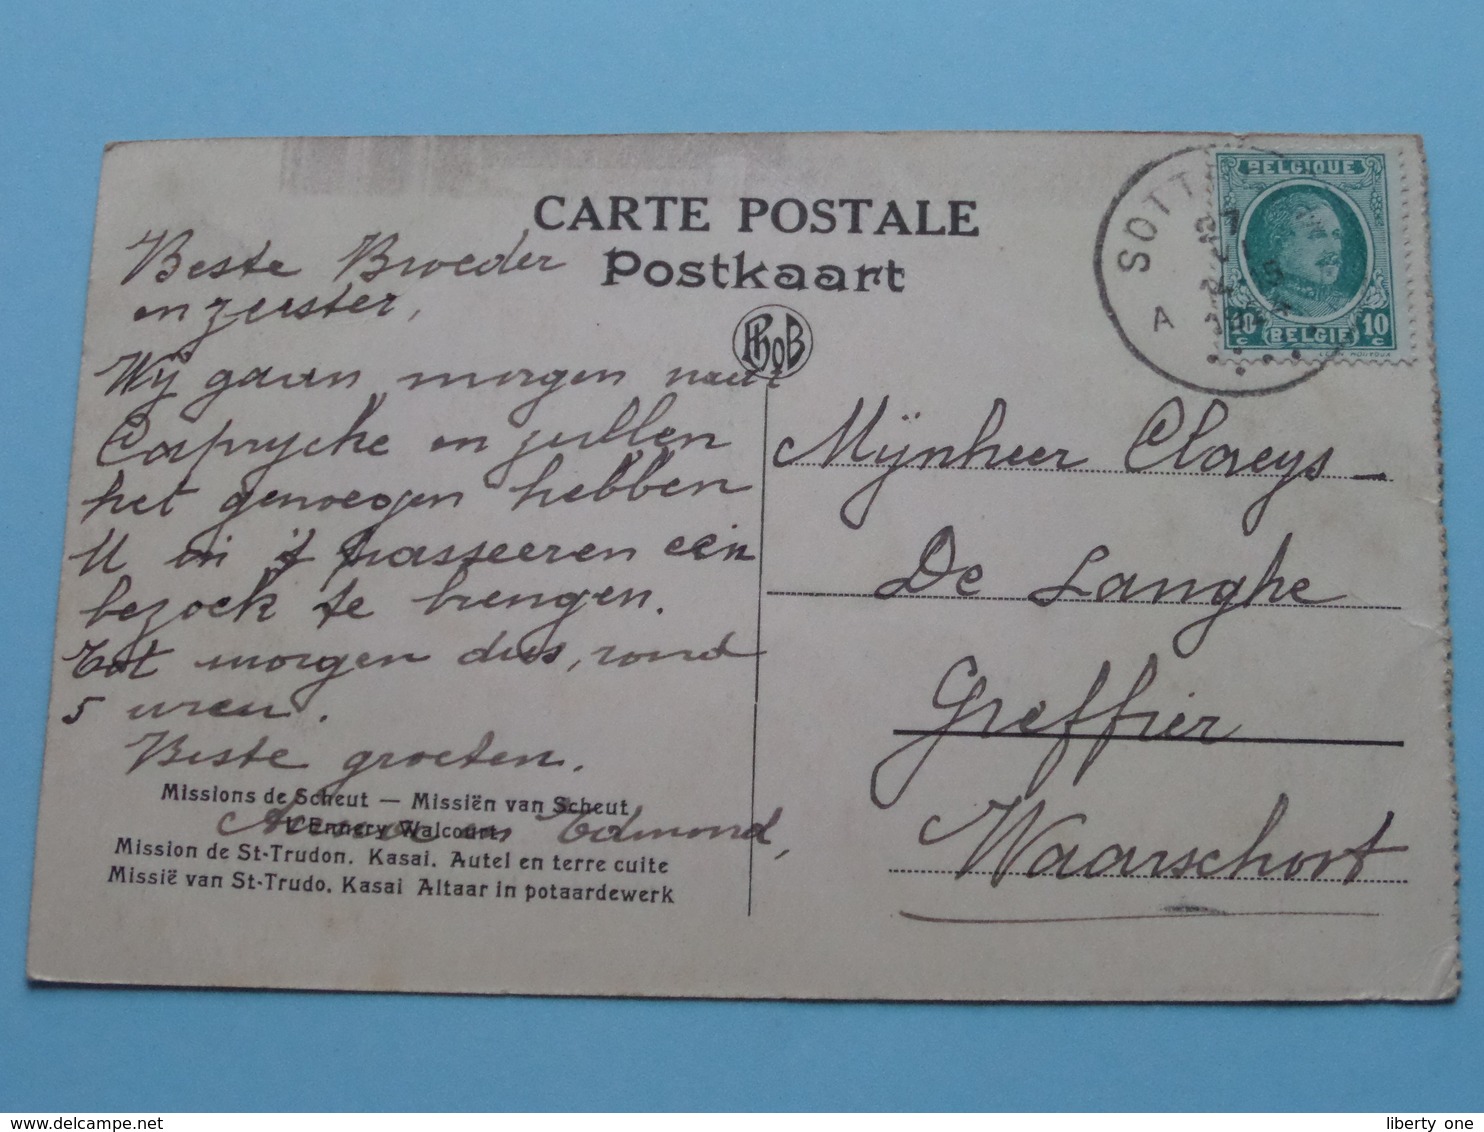 CARTE POSTALE
Postkaart
PhoB
BELGIQUE
10 c BELGIE 10 c
SOTT
A
Beste Broeder
en zuster,
Wij gaan morgen naar
Caprycke en zullen
het genoegen hebben
U in 't passeeren een
bezoek te brengen.
Tot morgen dus, rond
5 uren.
Beste groeten.
Edmond,
Mijnheer Claeys -
De Langhe
Greffier
Waarschoot
Missions de Scheut — Missiën van Scheut
L'Ennery Walcourt
Mission de St-Trudon. Kasai. Autel en terre cuite
Missië van St-Trudo. Kasai Altaar in potaardewerk
liberty one